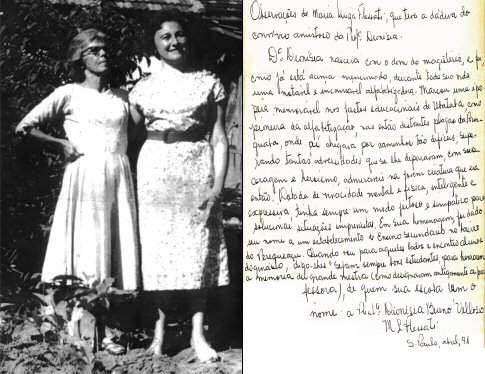 Observações de Maria Luiza Flessati, que teve a dádiva do
convívio amistoso da Profª. Dionísia.
Dª. Dionísia nascera com o dom do magistério, e foi,
como já está acima mencionado, durante toda sua vida
uma notável e incansável alfabetizadora. Marcou uma e
peia memorável nos fastos educacionais de Ubatuba, como
pioneira da alfabetização nas então distantes plagas da
quaba, onde ali chegara por caminhos tão difíceis, supe-
rando tantas adversidades que se lhe deparavam, com sua
coragem e heroísmo, admiráveis na jovem criatura que era
então. Dotada de vivacidade mental e física, inteligente e
expressiva, tinha sempre um modo jeitoso e simpático para
solucionar situações imprevistas. Em sua homenagem, foi dado
seu nome a um estabelecimento de Ensino Secundário no bairro
do Perequeaçu. Quando vou para aqueles lados e encontro alunos
do ginásio, digo-lhes: Sejam sempre bons estudantes, para honrarem
a memória da grande mestra (como designavam antigamente a pro
fessora), de quem sua escola tem o
nome: a Profª. Dionísia Bueno Velloso
M. L. Flessati
S. Paulo, abril, 98